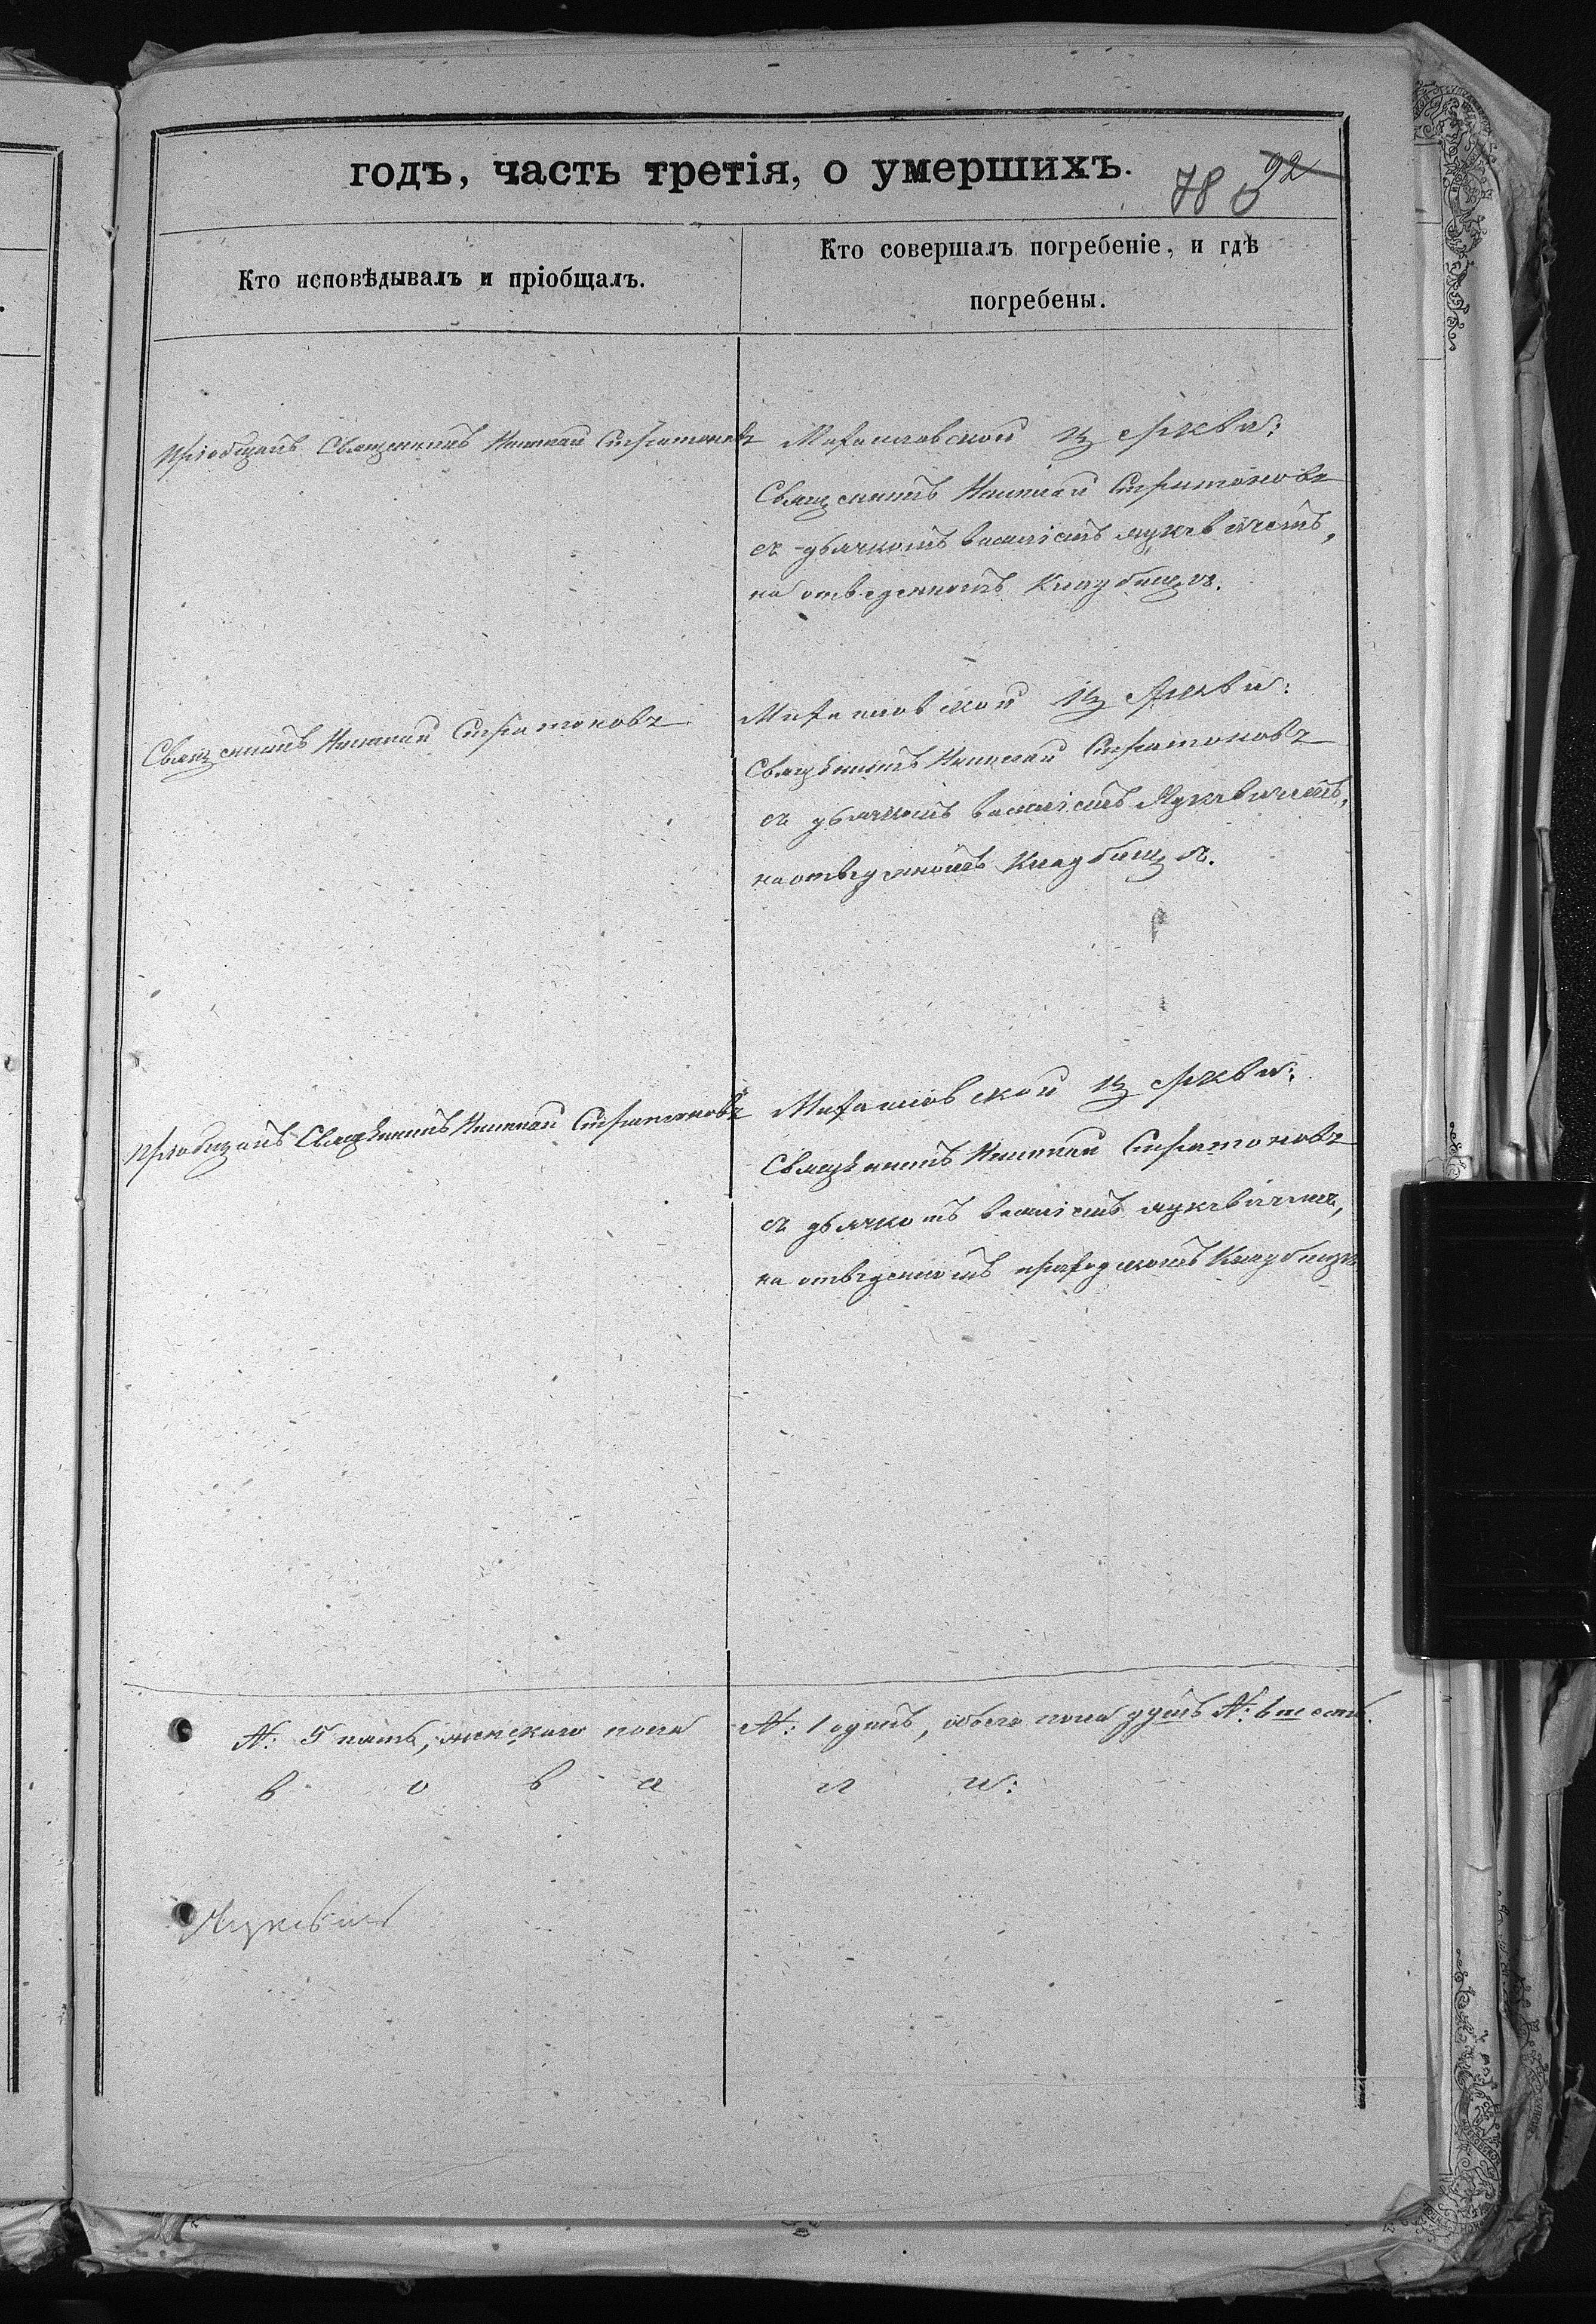 годъ, часть третія, о умершихъ.
78 92
Кто исповѣдывалъ и пріобщалъ.
Кто совершалъ погребеніе, и гдѣ
погребены.
Пріобщалъ Священникъ Николай Стратоновъ
Михаиловской церкви:
Священникъ Николай Стратоновъ
съ дьячкомъ Василіемъ
на отведенномъ Кладбищѣ.
Священникъ Николай Стратоновъ
Михаиловской церкви:
Священникъ Николай Стратоновъ
съ дьячкомъ Василіемъ
на отведенномъ Кладбищѣ.
Пріобщалъ Священникъ Николай Стратоновъ
Михаиловской церкви:
Священникъ Николай Стратоновъ
съ дьячкомъ Василіемъ
на отведенномъ приходскомъ Кладбищѣ
№: 5 пять, женскаго пола
№: 1 одинъ, обоего пола душъ №: 6 шесть.
в о в а
л и: